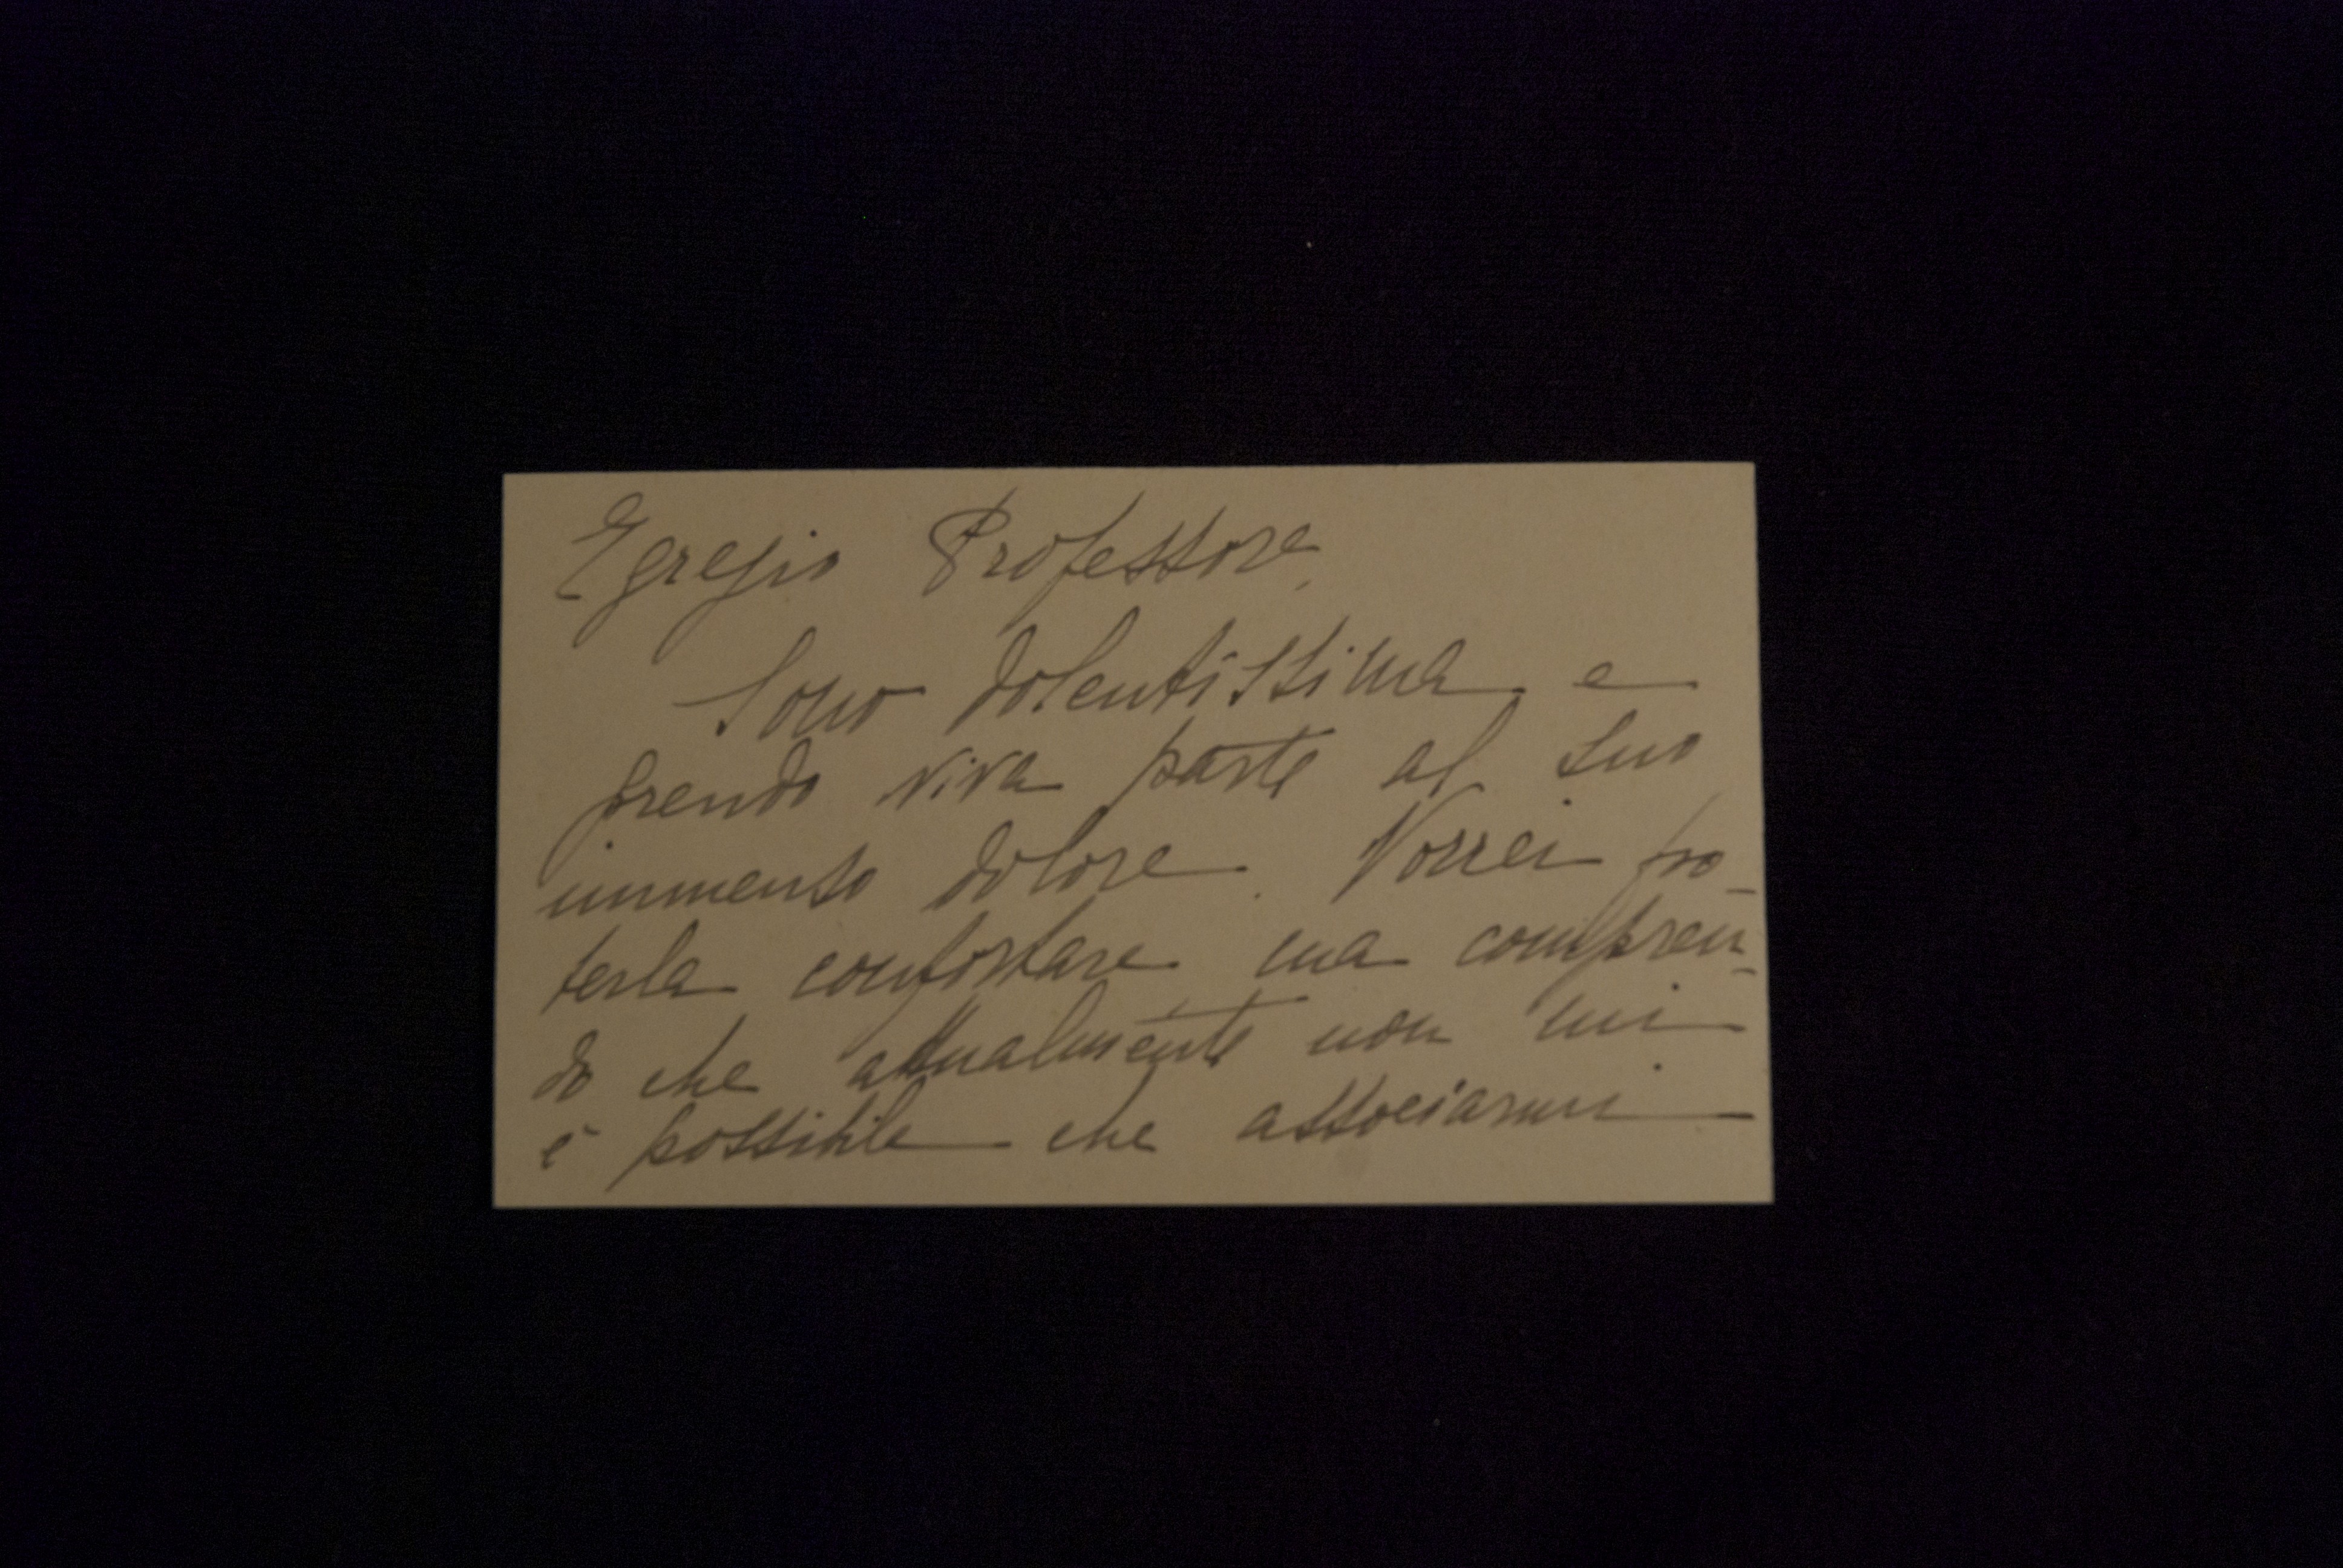 Egregio Professore,
Sono dolentissima e
prendo viva parte al suo
immenso dolore. Vorrei po-
terla confortare ma compren-
do che attualmente non mi
è possibile che associarmi